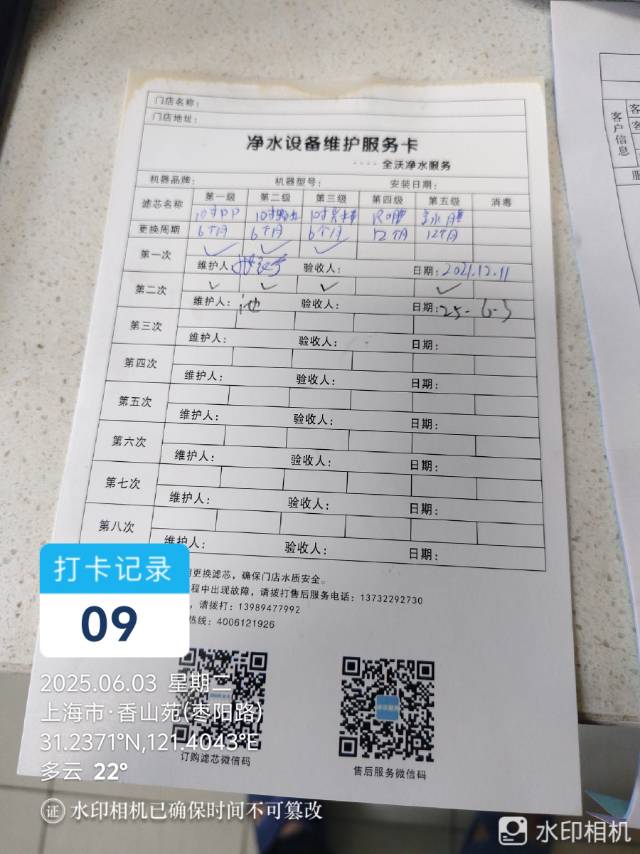 门店名称:
门店地址:
净水设备维护服务卡
---- 全沃净水服务
机器品牌: 机器型号: 安装日期:
滤芯名称 第一级 第二级 第三级 第四级 第五级 消毒
10寸PP 10寸 10寸 RO膜
更换周期 6个月 6个月 6个月 12个月 12个月
第一次 ✓ ✓ ✓
维护人: 验收人: 日期: 2021.12.11
第二次 ✓ ✓ ✓ ✓
维护人: 池 验收人: 日期: 25-6-3
第三次
维护人: 验收人: 日期:
第四次
维护人: 验收人: 日期:
第五次
维护人: 验收人: 日期:
第六次
维护人: 验收人: 日期:
第七次
维护人: 验收人: 日期:
第八次
维护人: 验收人: 日期:
更换滤芯,确保门店水质安全。
程中出现故障,请拨打售后服务电话:13732292730
,请拨打:13989477992
热线:4006121926
订购滤芯微信码
售后服务微信码
客户信息
打卡记录
09
2025.06.03 星期二
上海市·香山苑(枣阳路)
31.2371°N,121.4043°E
多云 22°
证 水印相机已确保时间不可篡改
水印相机